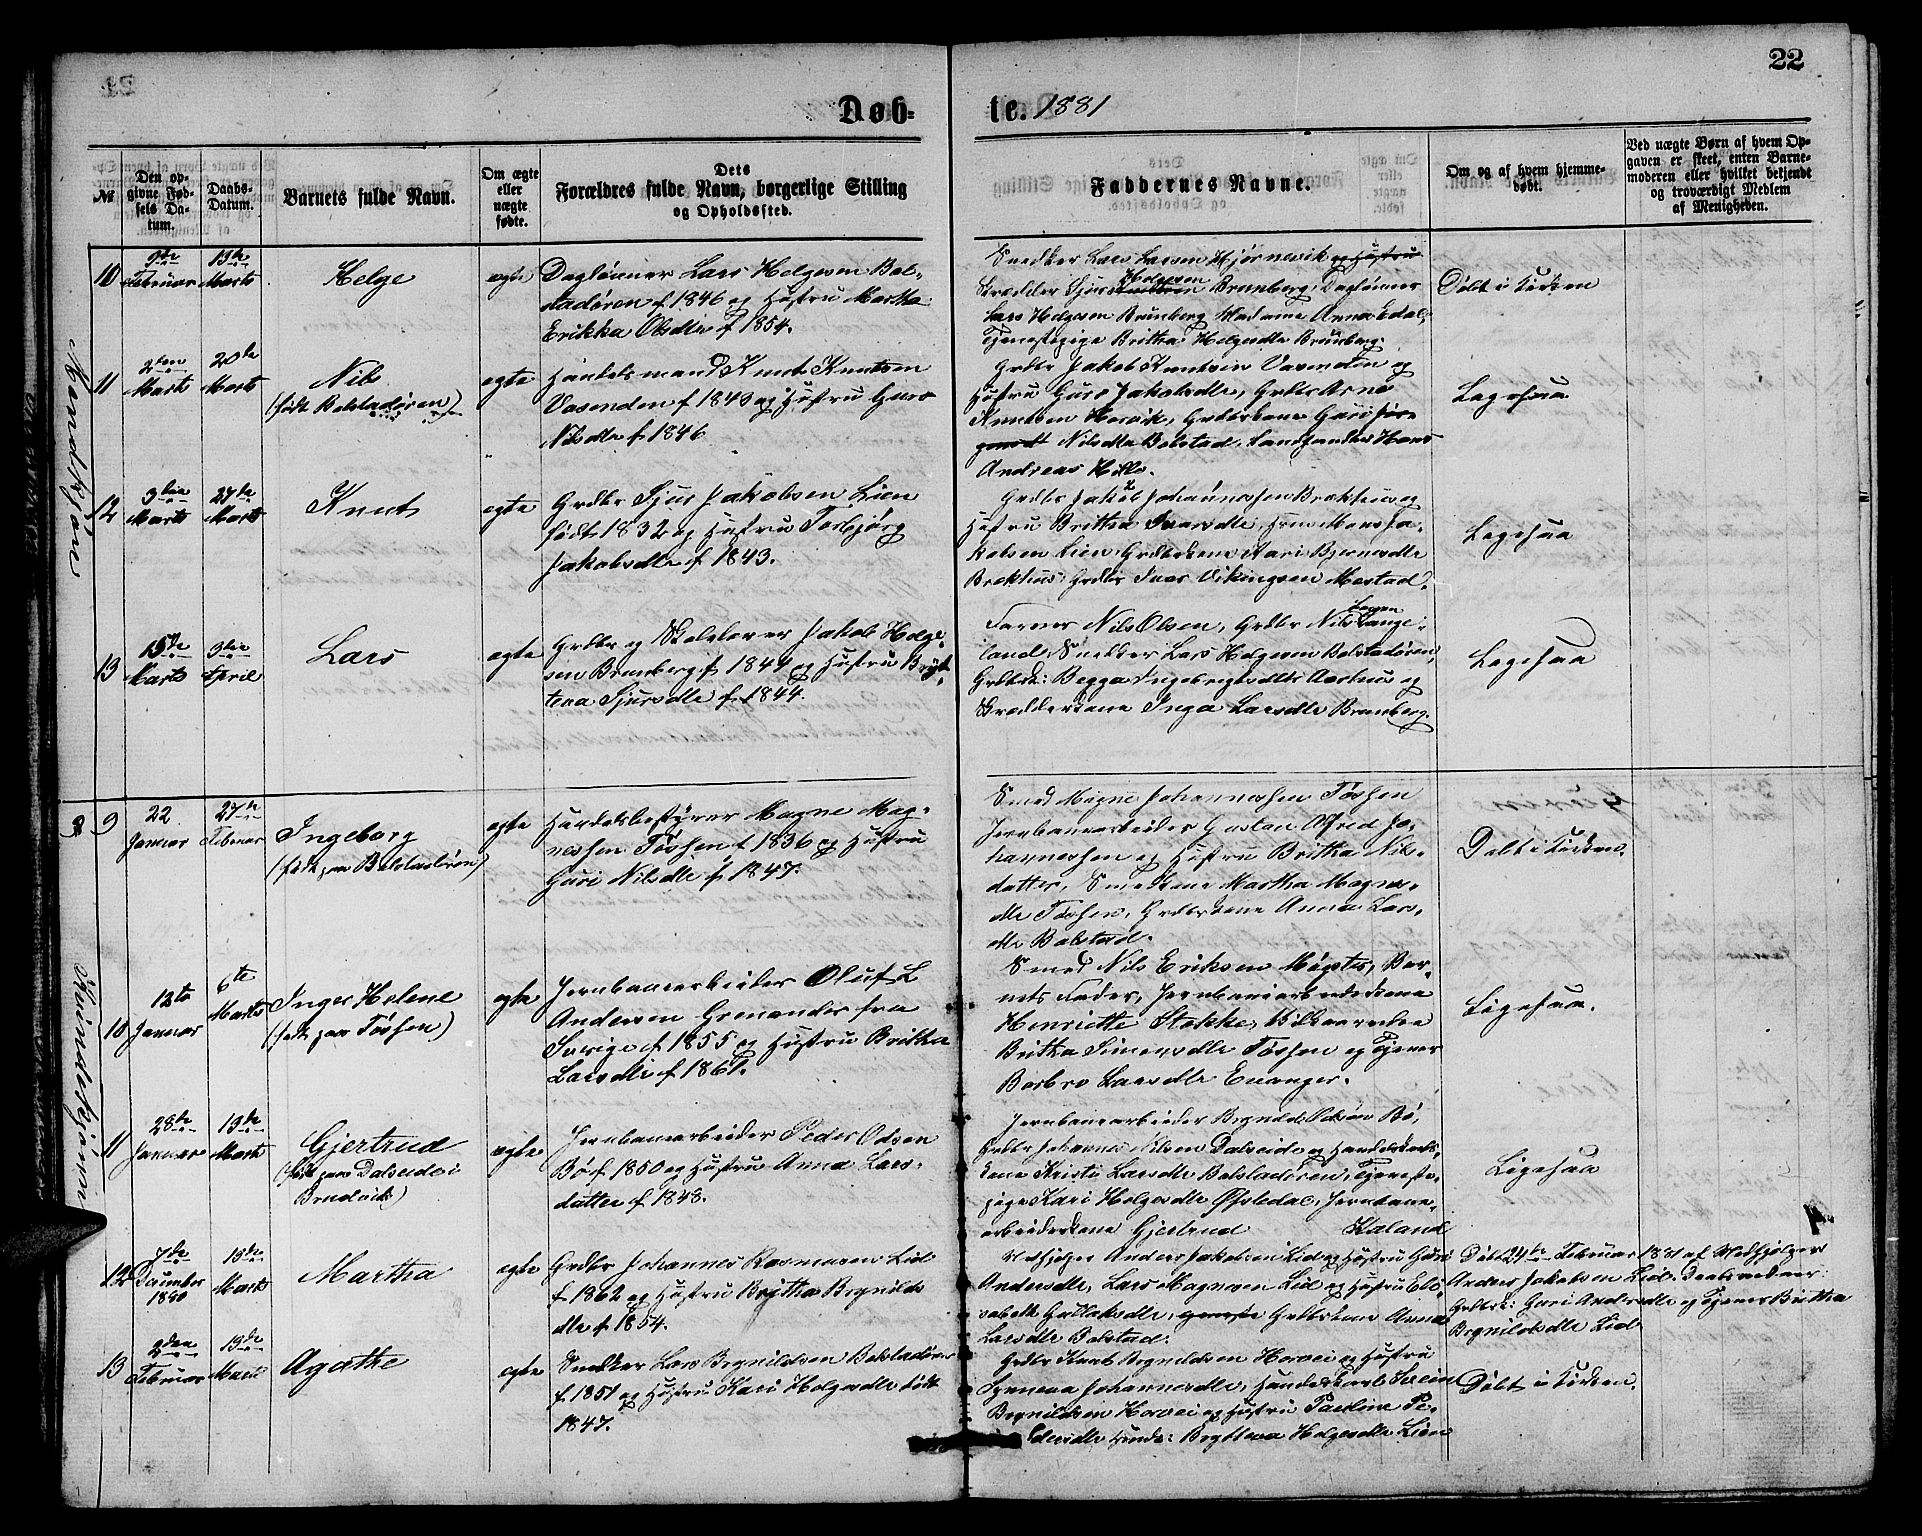 22
Døb=
te. 1881
№
Den op-
givne Fød-
sels Da-
tum.
Daabs-
Datum.
Barnets fulde Navn.
Om ægte
eller
uægte
fødte.
Dets
Forældres fulde Navn, borgerlige Stilling
og Opholdssted.
Faddernes Navne.
Om og af hvem hjemme-
døbt.
Ved uægte Børn af hvem Op-
gaven er skeet, enten Barne-
moderen eller hvilket bekjendt
og troværdigt Medlem
af Menigheden.
Mandkjøn
10
9de
Februar
13de
Marts
Helge
ægte
Daglønner Lars Helgesen Bol-
stadøren f. 1846 og Hustru Martha
Erikka Olsdtr f 1854.
Snedker Lars Larsen Hjørnevik og Hustru
Skrædder Sjur Helgesen Brunberg, Daglønner
Lars Helgesen Brunberg, Madame Anna Edal,
Tjenestepige Britha Helgesdtr Brunberg.
Døbt i Kirken
11
2den
Marts
20de
Marts
Nils
(født Bolstadøren)
ægte
Handelsmand Knut Knutsen
Vasenden f 1843 og Hustru Guro
Nilsdtr f. 1846
Grdbr Jakob Knutsen Vasenden og
Hustru Guro Jakobsdtr, Grdbr Arne
Knutsen Horvik, Grdbrkone Guri
Nilsdtr Bolstad, Landhandler Hans
Andreas Hille.
Ligesaa
12
3die
Marts
27de
Marts
Knut
ægte
Grdbr Sjur Jakobsen Lien
født 1832 og Hustru Torbjørg
Jakobsdtr f 1843.
Grdbr Jakob Johannessen Brekhus og
Hustru Britha Ivarsdtr, Mons Ja-
kobsen Lien, Grdbrkone Kari Bjørnsdtr
Brekhus, Grdbr Ivar Vikingsen Mestad.
Ligesaa
13
15de
Marts
3die
April
Lars
ægte
Grdbr og Skolelærer Jakob Helge-
sen Brunberg f 1844 og Hustru Bryt-
teva Sjursdtr f 1844.
Farver Nils Olsen, Grdbr Nils Larsen Lange-
land, Snedker Lars Helgesen Bolstadøren,
Grdbrk: Begga Ingebrigtsdtr Aarhus og
Skrædderkone Inga Larsdtr Brunberg.
Ligesaa
Kvindekjøn
9
22
Januar
27de
Februar
Ingeborg
(født paa Bolstadøren)
ægte
Handelsbestyrer Magne Mag-
nessen Fossen f 1836 og Hustru
Guri Nilsdtr f. 1847.
Smed Magne Johannessen Fossen
Jernbanearbeider Gustav Alfred Jo-
hannessen og Hustru Britha Nils-
datter, Smedkone Martha Magne-
dtr Fossen, Grdbrkone Anna Lars-
dtr Bolstad.
Døbt i Kirken.
10
12te
Januar
6te
Marts
Inger Helene
(født paa Fossen)
ægte
Jernbanearbeider Oluf L
Andersen Gremander fra
Sverige f 1855 og Hustru Britha
Larsdtr f 1861.
Smed Nils Eriksen Mügster, Bar-
nets Fader, Jernbanearbeiderkone
Henriette Stokke,
Britha Simonsdtr Fossen og Tjener
Barbro Larsdtr Evanger.
Ligesaa.
11
28de
Januar
13de
Marts
Gjertrud
(født paa Dalseide i
Brudvik)
ægte
Jernbanearbeider Peder Odsen
Bø f 1850 og Hustru Anna Lars-
datter f 1848.
Jernbanearbeider Brynild Odsøn Bø,
Grdbr Johannes Nilsen Dalseide og Handelskarl-
kone Kristi Larsdtr Bolstadøren, Tjeneste-
pige Kari Helgesdtr Øfsledal, Jernbane-
arbeiderkone Gjertrud Kaland
Ligesaa
12
7de
December
1880
13de
Marts
Martha
ægte
Grdbr Johannes Rasmussen Lid
f 1862 og Hustru Britha Brynilds
dtr f. 1854.
Medhjelper Anders Jakobsen Lid og Hustru Guri
Andersdtr, Lars Magnesen Lid og Hustru Eli-
sabeth Gullaksdtr, Grdbrkone Anna
Larsdtr Bolstad.
Døbt 24de Februar 1881 af Medhjelper
Anders Jakobsen Lid. Daabsvidner:
Grdbrk: Guri Andersdtr og Tjener Britha
Brynildsdtr Lid
13
2den
Februar
13de
Marts
Agathe
ægte
Snedker Lars Brynildsen Bolstadøren
f. 1851 og Hustru Kari Helgesdtr født
1847.
Grdbr Knut Brynildsen Horvei og Hustru
Synneva Johannesdtr, Handelskarl Svein
Brynildsen Horvei og Hustru Pauline Pe-
dersdtr Brytteva Helgesdtr Lien
Døbt i Kirken.